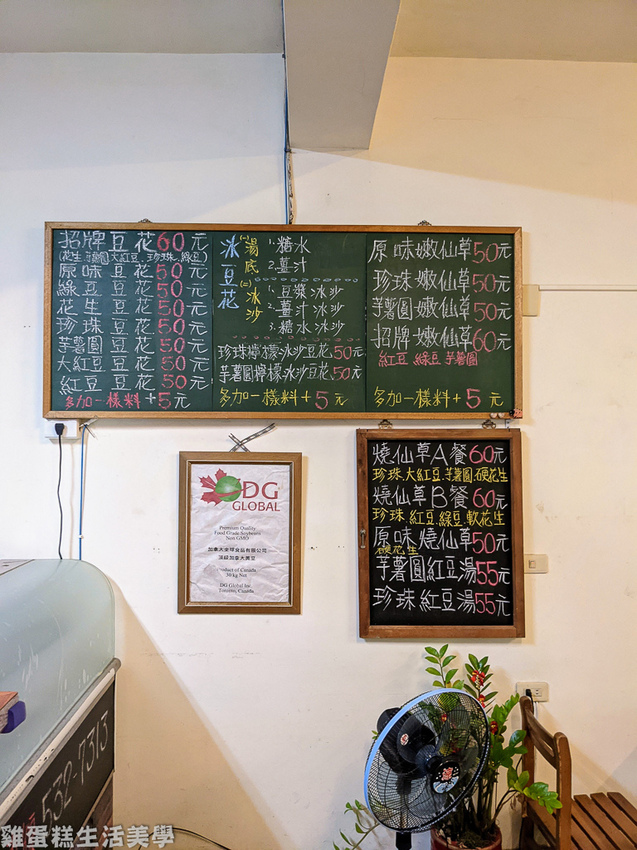 招牌豆花60元
(花生.芋圓.大紅豆.珍珠.綠豆)
原味豆花50元
綠豆豆花50元
花生豆花50元
珍珠豆花50元
芋薯圓豆花50元
大紅豆豆花50元
紅豆豆花50元
多加一樣料+5元
冰豆花
(一)湯底
1.糖水
2.薑汁
(二)冰沙
1.豆漿冰沙
2.薑汁冰沙
3.糖水冰沙
珍珠檸檬冰沙豆花50元
芋薯圓檸檬冰沙豆花50元
多加一樣料+5元
原味嫩仙草50元
珍珠嫩仙草50元
芋薯圓嫩仙草50元
招牌嫩仙草60元
紅豆 綠豆 芋薯圓
多加一樣料+5元
DG
GLOBAL
Premium Quality
Food Grade Soybeans
Non GMO
加拿大環球食品有限公司
頂級加拿大黃豆
Product of Canada
30 kg Net
DG Global Inc.
Toronto, Canada
燒仙草A餐60元
珍珠.大紅豆.芋薯圓.硬花生
燒仙草B餐60元
珍珠.紅豆.綠豆.軟花生
原味燒仙草50元
硬花生
芋薯圓紅豆湯55元
珍珠紅豆湯55元
532-7313
雞蛋糕生活美學